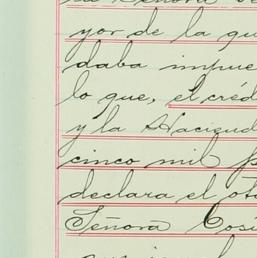 la Señora
yor de la
daba
lo que, el créd
y la Haciend
cinco mil
declara el oto
Señora